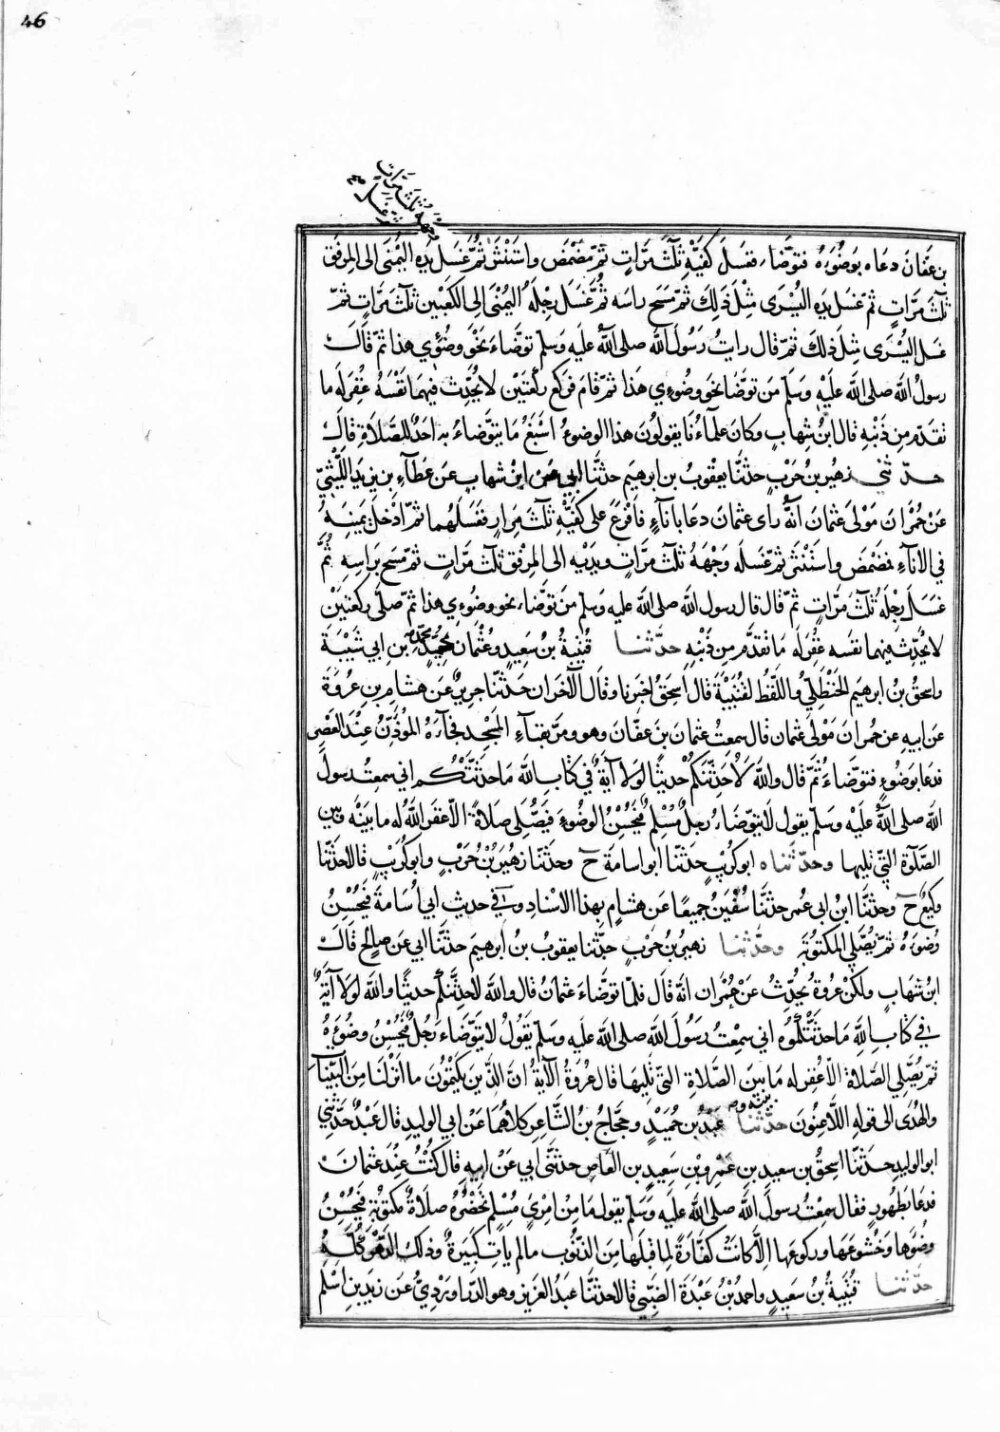 46
وجهه ثلث مرات
ثم غسل
صح
بن عفان دعاه بوضوءه فتوضاء فغسل كفيه ثلث مرات ثم مضمض واستنثر ثم غسل يده اليمنى الى المرفق
ثلث مرات ثم غسل يده اليسرى مثل ذلك ثم مسح راسه ثم غسل رجله اليمنى الى الكعبين ثلث مرات ثم
غسل اليسرى مثل ذلك ثم قال رايت رسول الله صلى الله عليه وسلم توضاء نحو وضوءي هذا ثم قال
رسول الله صلى الله عليه وسلم من توضا نحو وضوءي هذا ثم قام فركع ركعتين لا يحدث فيهما نفسه غفر له ما
تقدم من ذنبه قال ابن شهاب وكان علماءنا يقولون هذا الوضوء اسبغ ما يتوضاء به احد للصلاة قال
حدثني زهير بن حرب حدثنا يعقوب بن ابرهيم حدثنا ابي عن ابن شهاب عن عطاء بن يزيد الليثي
عن حمران مولى عثمان انه راى عثمان دعا باناء فافرغ على كفيه ثلث مرار فغسلهما ثم ادخل يمينه
في الاناء فمضمض واستنثر ثم غسل وجهه ثلث مرات ويديه الى المرفق ثلث مرات ثم مسح براسه ثم
غسل رجله ثلث مرات ثم قال قال رسول الله صلى الله عليه وسلم من توضاء نحو وضوءي هذا ثم صلى ركعتين
لا يحدث فيهما نفسه غفر له ما تقدم من ذنبه حدثنا قتيبة بن سعيد وعثمان بن محمد بن ابي شيبة
واسحق بن ابرهيم الحنظلي واللفظ لقتيبة قال اسحق اخبرنا وقال الاخران حدثنا جرير عن هشام بن عروة
عن ابيه عن حمران مولى عثمان قال سمعت عثمان بن عفان وهو بفناء المسجد فجاءه المؤذن عند العصر
فدعا بوضوء فتوضاء ثم قال والله لاحدثنكم حديثا لولا آية في كتاب الله ما حدثتكم اني سمعت رسول
الله صلى الله عليه وسلم يقول لا يتوضاء رجل مسلم فيحسن الوضوء فيصلي صلاة الا غفر الله له ما بينه وبين
الصلوة التي تليها وحدثناه ابو كريب حدثنا ابو اسامة ح وحدثنا زهير بن حرب وابو كريب قالا حدثنا
وكيع ح وحدثنا ابن ابي عمر حدثنا سفين جميعا عن هشام بهذا الاسناد وفي حديث ابي اسامة فيحسن
وضوءه ثم يصلي المكتوبة وحدثنا زهير بن حرب حدثنا يعقوب بن ابرهيم حدثنا ابي عن صالح قال
ابن شهاب ولكن عروة يحدث عن حمران انه قال فلما توضاء عثمان قال والله لاحدثنكم حديثا والله لولا آية
في كتاب الله ما حدثتكموه اني سمعت رسول الله صلى الله عليه وسلم يقول لا يتوضاء رجل فيحسن وضوءه
ثم يصلي الصلاة الا غفر له ما بين الصلاة التي تليها قال عروة الآية ان الذين يكتمون ما انزلنا من البينات
والهدى الى قوله اللاعنون حدثنا عبد بن حميد وحجاج بن الشاعر كلاهما عن ابي الوليد قال عبد حدثني
ابو الوليد حدثنا اسحق بن سعيد بن عمرو بن سعيد بن العاص حدثني ابي عن ابيه قال كنت عند عثمان
فدعا بطهور فقال سمعت رسول الله صلى الله عليه وسلم يقول ما من امرئ مسلم تحضره صلاة مكتوبة فيحسن
وضوءها وخشوعها وركوعها الا كانت كفارة لما قبلها من الذنوب ما لم يات كبيرة وذلك الدهر كله
حدثنا قتيبة بن سعيد واحمد بن عبدة الضبي قالا حدثنا عبد العزيز وهو الدراوردي عن زيد بن اسلم